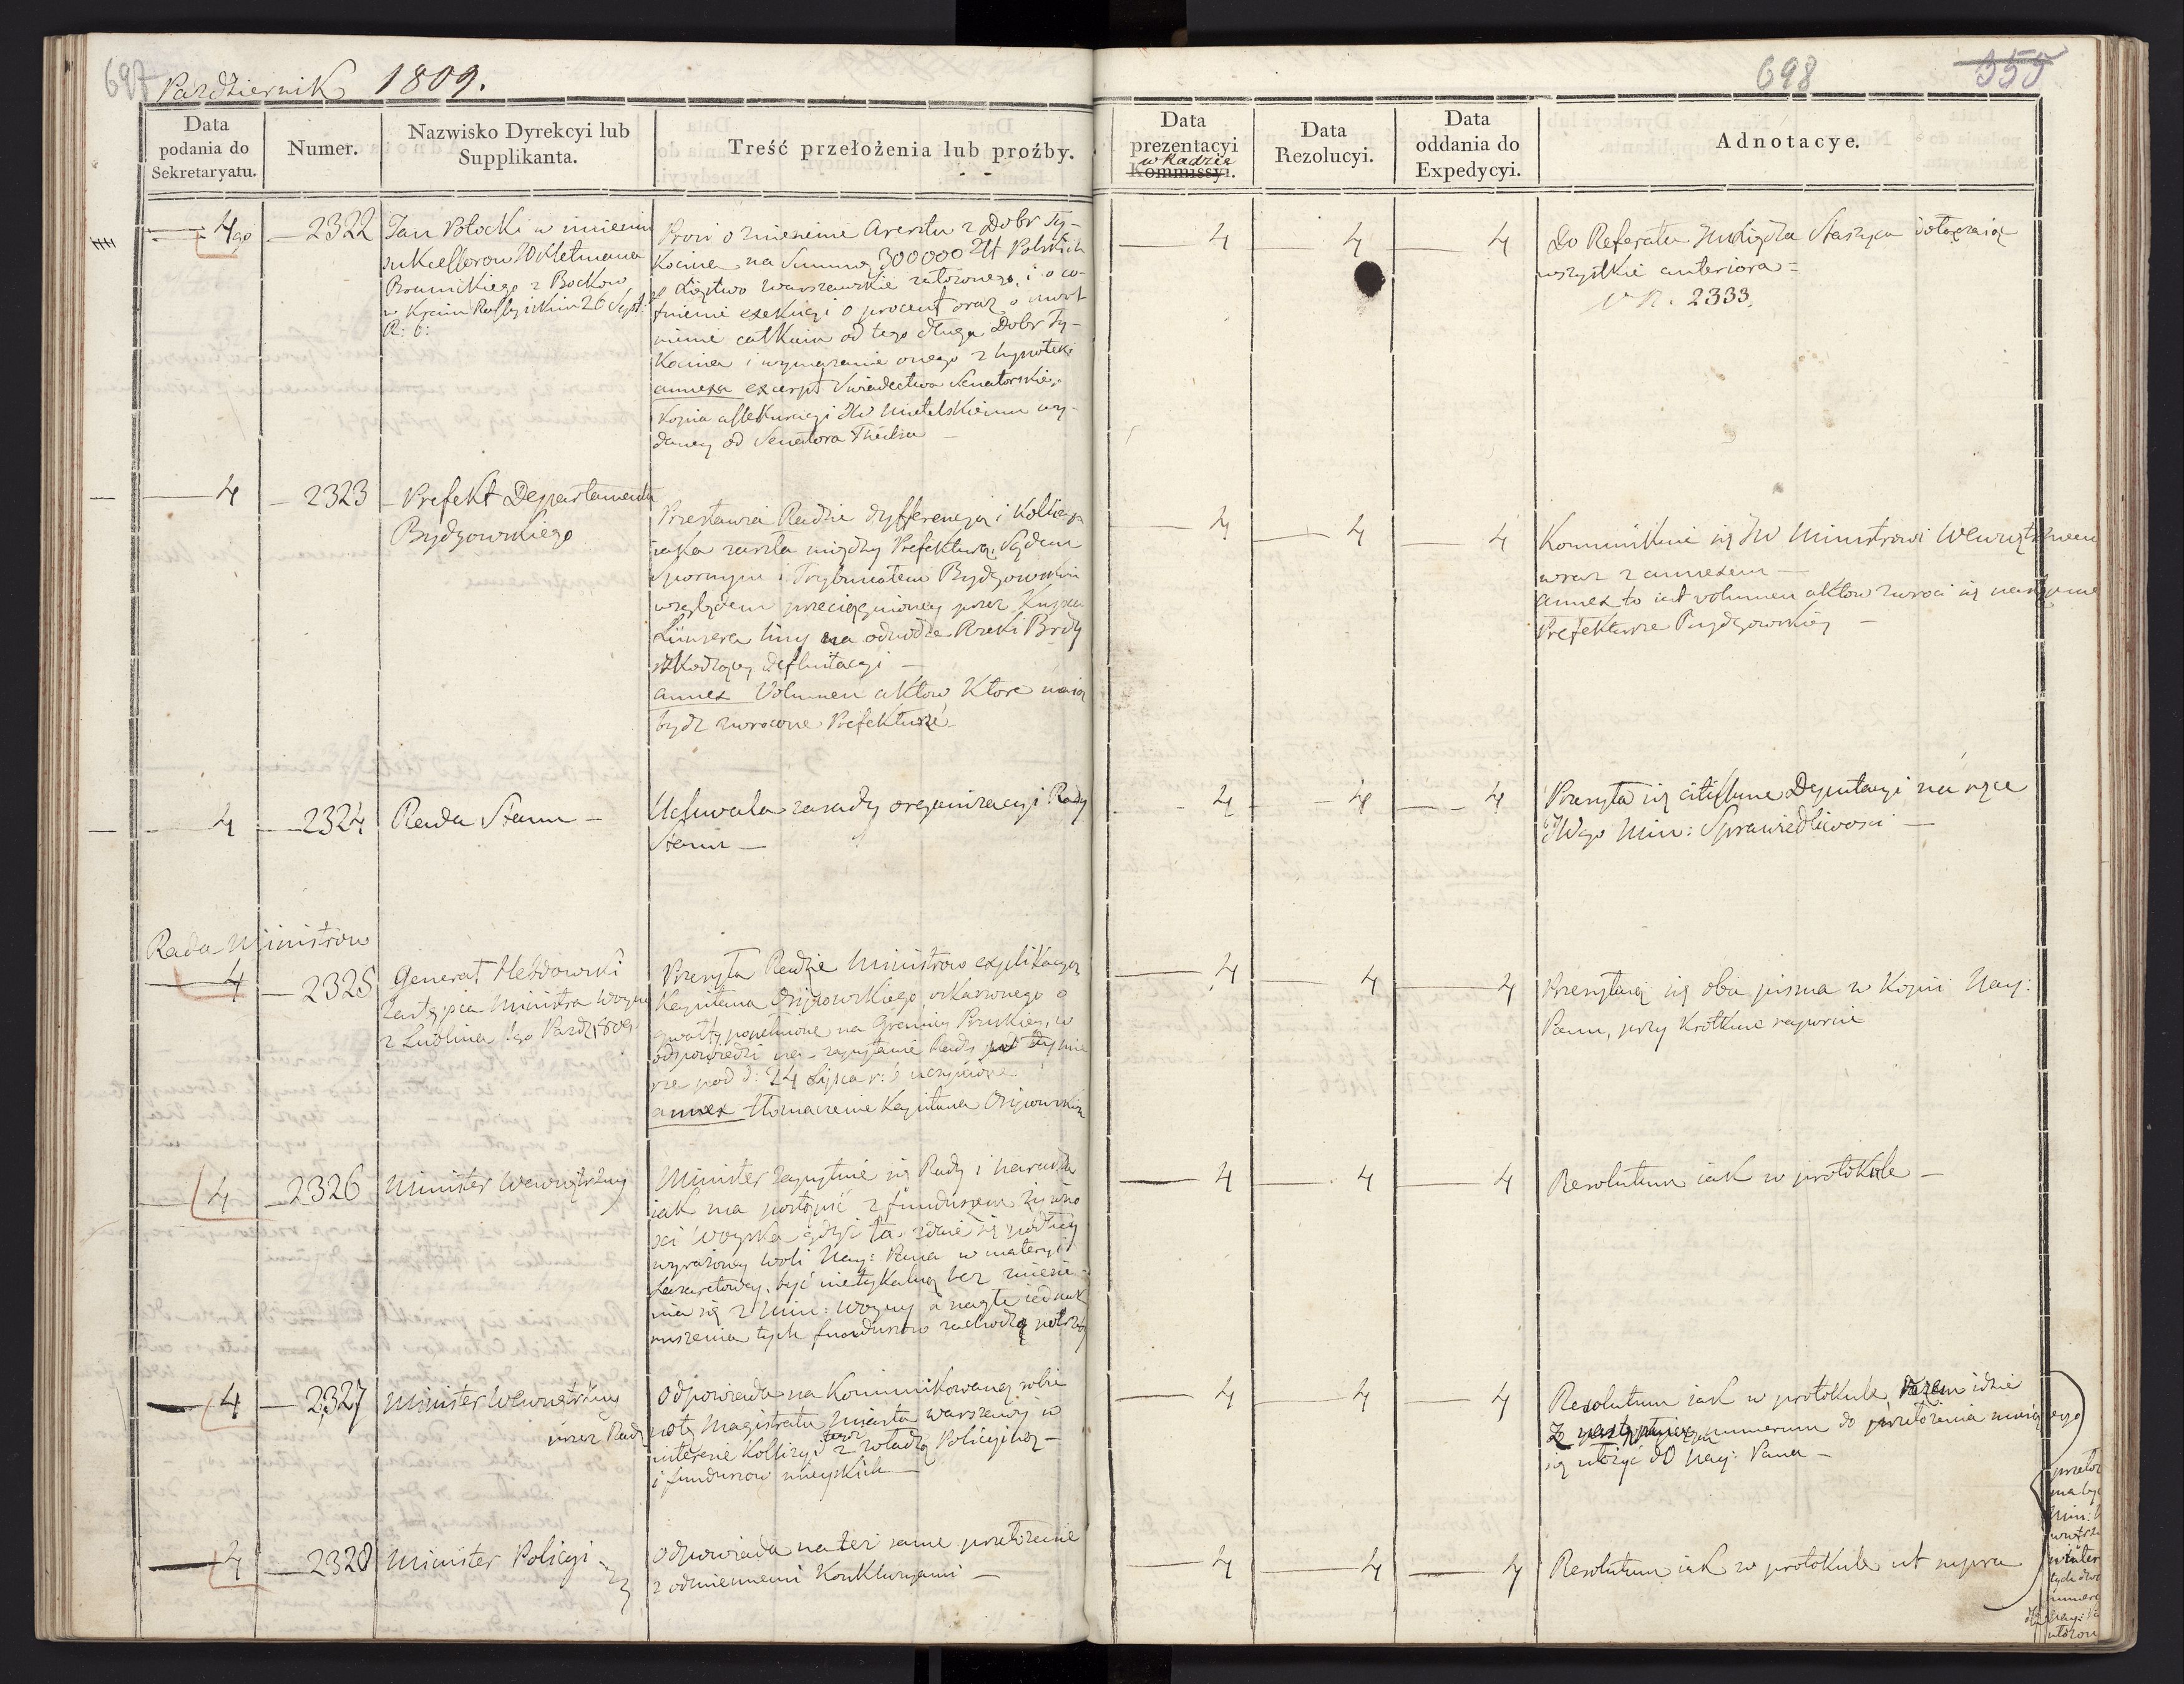 697
Pazdziernik 1809.
Data podania do Sekretaryatu.
Numer.
Nazwisko Dyrekcyi lub Supplikanta.
Treść przełożenia lub proźby.
4go
2322
Jan Potocki w imieniu
sukcessorow JW Hetmana
Branickiego z Bockow
w Kraiu Rossyiskim 26 Sept:
R: b:
Prosi o zniesienie Aresztu z Dobr Ty-
kocina na Summę 300000 Zł Polskich
Xięztwo Warszawskie założonego, i o co-
fnienie exekucyi o procent oraz o uwol
nienie całkiem od tego długu Dobr Ty-
kocina i wymazanie onego z hypoteki
annexa excerpt Swiadectwa Senatorskiego
kopia assekuracyi JW Mielskiemu wy-
daney od Senatora Theilsa
4
2323
Prefekt Departamentu
Bydgowskiego
Przestawia Radzie dyfferencyą i kollizyą
iaka zaszła między Prefekturą, Sądem
Spornym i Trybunałem Bydgowskim
względem przeciągnioney przez Kupca
liny na odnodze Rzeki Brdy
szkodzącey defluitacyi
annex Volumen aktow ktore maią
bydz zwrocone Prefekturze
4
2324
Rada Stanu
Uchwala zasady organizacyi Rady
Stanu
Rada Ministrow
4
2325
Generał Hebdowski
Zastępca Ministra Woyny
z Lublina 1go Pazdz: 809
Przesyła Radzie Ministrow explikacyą
Kapitana Osipowskiego oskarżonego o
gwałty popełnione na Granicy Pruskiey, w
odpowiedzi na zapytanie Rady
pod d: 24 Lipca r: b uczynione.
annex tłomaczenie Kapitana Osipowskiego
4
2326
Minister Wewnętrzny
Minister zapytuie się Rady i naradza
iak ma postąpić z funduszem żywno
sci woyska gdyż ta zdaie się podług
wyrażoney woli Nay: Pana w materyi
Lazaretowey, być nietykalną bez zniesie-
nia się z Min: Woyny a nagłe iednak
ruszenia tych funduszow zachodzą potrzeby
4
2327
Minister Wewnętrzny
przez Radę
Odpowiada na kommunikowaną sobie
notę Magistratu Miasta Warszawy w
interesie kollizyi tegoż z władzą Policyiną
i funduszow mieyskich
4
2328
Minister Policyi
Odpowiada na też same przełożenie
z odmiennemi konkluzyami
698
355
Data prezentacyi
w Radzie
Kommissyi.
Data Rezolucyi.
Data oddania do Expedycyi.
Adnotacye.
4 4 4
Do Referatu Xiędza Staszyca dołączaią
wszystkie anteriora =
V N. 2333.
4 4 4
Kommunikuie się JW Ministrowi Wewnętrznemu
wraz z annexem
annex to iest volumen aktow zwroci się
Prefekturze Bydgowskiey
4 4 4
Przesyła się citissime Deputacyi na ręce
JWgo Min: Sprawiedliwosci
4 4 4
Przesyłaią się oba pisma w Kopii Nay:
Panu, przy krotkim raporcie
4 4 4
Resolutum iak w protokule
4 4 4
Resolutum iak w protokule, razem idzie
z następuiącym numerum do przełożenia maiącego
się ułożyć do Nay: Pana
4 4 4
Resolutum iak w protokule ut supra